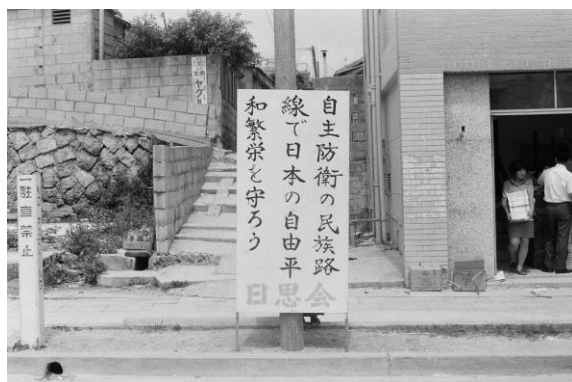 自主防衛の民族路
線で日本の自由平
和繁栄を守ろう
日思会
駐車禁止